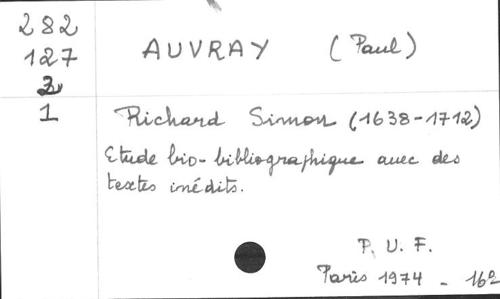 282
127
2
1
AUVRAY (Paul)
Richard Simon (1638-1712)
Etude bio-bibliographique avec des
textes inédits.
P. U. F.
Paris 1974 - 16º